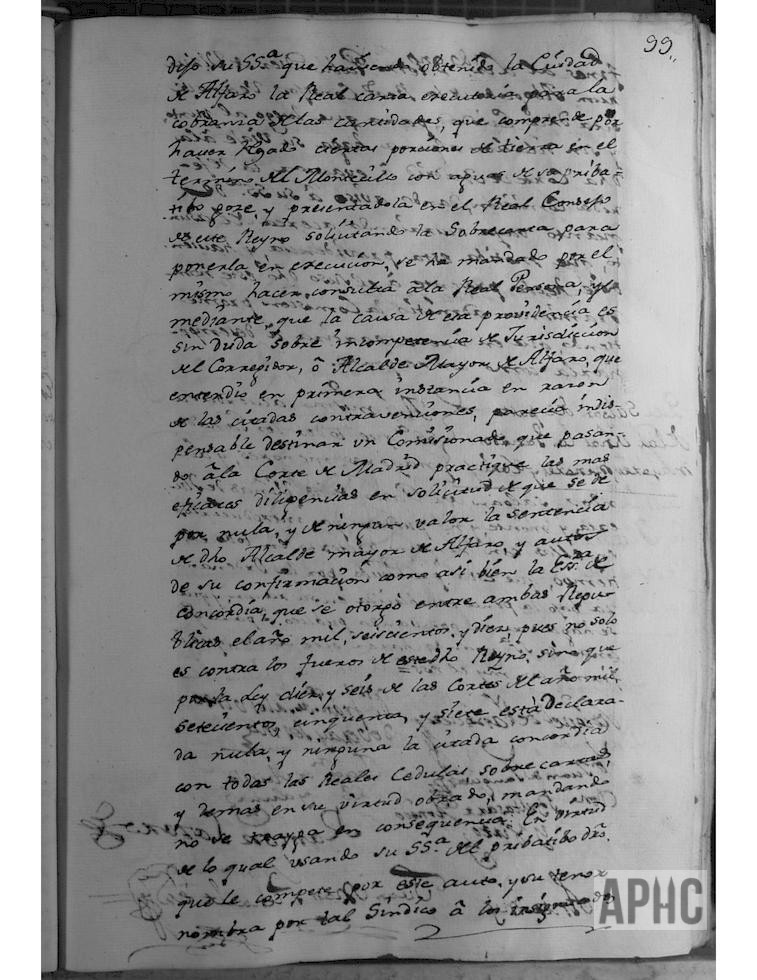 99.,
dijo su SSª que haviendo obtenido la Ciudad
de Alfaro la Real carta executoria para la
cobranza de las cantidades, que comprende por
haver regado ciertas porciones de tierra en el
termino del Montecillo con aguas de su priba-
tibo goze, y presentadola en el Real Consejo
de este Reyno solicitando la Sobrecarta para
ponerla en execucion, se ha mandado por el
mismo hacer consulta a la Real Persona, y
mediante, que la causa de esa providencia es
sin duda sobre incompetencia de Jurisdicion
del Corregidor, ô Alcalde Mayor de Alfaro, que
entendio en primera instancia en razon
de las citadas contravenciones, parecio indis-
pensable destinar un Comisionado, que pasan-
do â la Corte de Madrid practique las mas
eficaces diligencias en solicitud de que se de
por nula, y de ningun valor la sentencia
de dho Alcalde mayor de Alfaro y autos
de su confirmacion como asi bien la Essra de
concordia, que se otorgò entre ambas Repu-
blicas el año mil, seiscientos, y diez, pues no solo
es contra los fueros de este dho Reyno, sino que
por la Ley diez, y seis de las Cortes del año mil,
setecientos, cinquenta, y siete està declara-
da nula, y ninguna la citada concordia
con todas las Reales Cedulas, sobrecartas,
y demas en su virtud obrado, mandando
no se trayga en consequencia: En virtud
de lo qual usando su SSª del pribatibo dro.
que le compete por este auto, y su tenor
nombra por tal Sindico â los
APHC